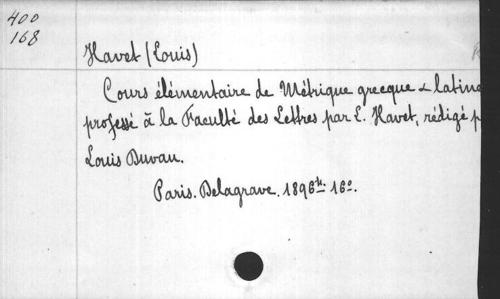 400
168
Havet (Louis)
Cours élémentaire de Métrique grecque & latine
professé à la Faculté des Lettres par L. Havet, rédigé p
Louis Duvau.
Paris. Delagrave. 1896. 16º.